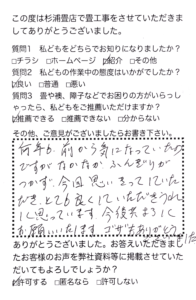 この度は杉浦畳店で畳工事をさせていただきま
してありがとうございました。
質問1 私どもをどちらでお知りになりましたか？
□チラシ □ホームページ ☑紹介 □その他
質問2 私どもの作業中の態度はいかがでしたか？
☑良い □普通 □悪い
質問3 畳や襖、障子などでお困りの方がいらっし
ゃったら、私どもをご推薦いただけますか？
☑推薦できる □推薦できない □分からない
その他、ご意見がございましたらお書き下さい。
何年も前から気になっていたの
ですがなかなかふんぎりが
つかず、今回思いきってしていた
だき、とても良くしていただきうれし
に思っています 今後共よろしく
お願いいたします
ありがとうございました。お答えいただきまし
たお客様のお声を弊社資料等に掲載させていた
だいてもよろしでしょうか？
☑許可する □匿名なら □許可しない